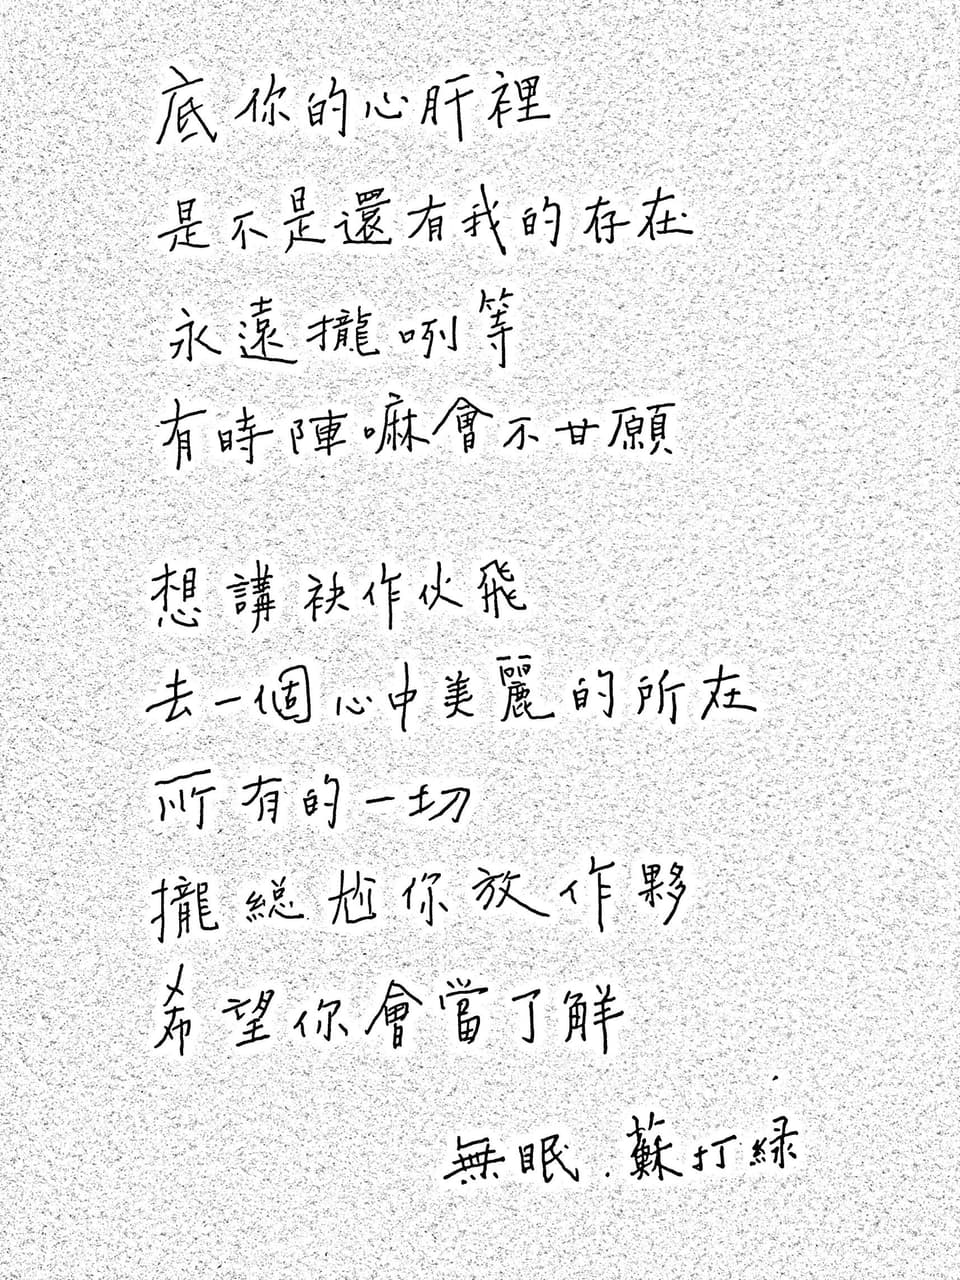 底你的心肝裡
是不是還有我的存在
永遠攏咧等
有時陣嘛會不甘願
想講袂作伙飛
去一個心中美麗的所在
所有的一切
攏總尪你放作夥
希望你會當了解
無眠.蘇打綠